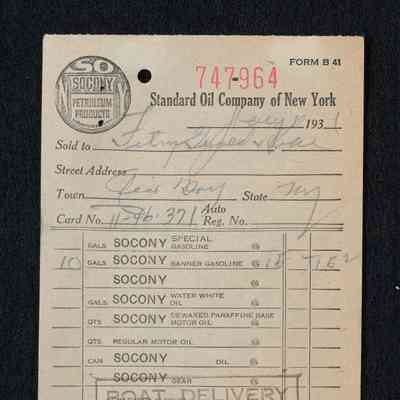 SO
SOCONY
PETROLEUM
PRODUCTS
FORM B 41
747964
Standard Oil Company of New York
1931
Sold to
Street Address
Town Bay State NY
Card No. 11-96-371 Auto Reg. No.
GALS SOCONY SPECIAL GASOLINE @
10 GALS SOCONY BANNER GASOLINE @ 15 1 52
SOCONY
GALS SOCONY WATER WHITE OIL @
QTS SOCONY DEWAXED PARAFFINE BASE MOTOR OIL @
QTS REGULAR MOTOR OIL @
CAN SOCONY OIL @
SOCONY GEAR @
BOAT DELIVERY